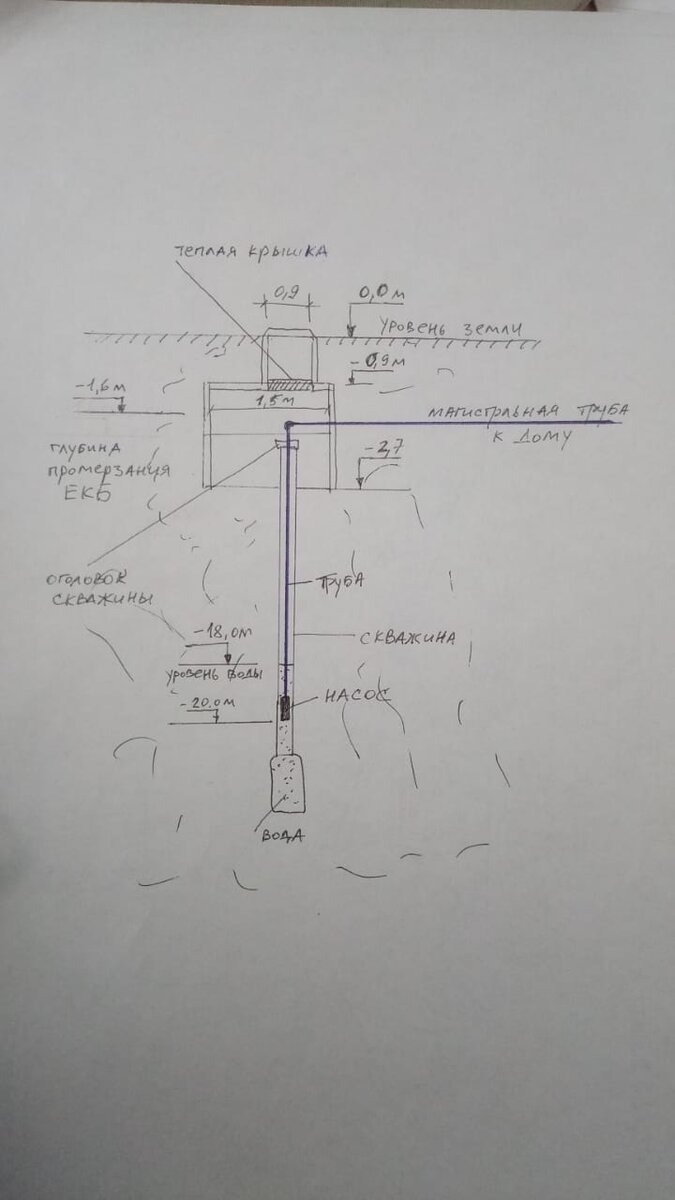 ТЕПЛАЯ КРЫШКА
0,9
0,0 м
УРОВЕНЬ ЗЕМЛИ
-0,9м
-1,6 м
1,5м
МАГИСТРАЛЬНАЯ ТРУБА
К ДОМУ
ГЛУБИНА
ПРОМЕРЗАНИЯ
ЕКБ
-2,7
ОГОЛОВОК
СКВАЖИНЫ
ТРУБА
-18,0м
СКВАЖИНА
УРОВЕНЬ ВОДЫ
НАСОС
-20.0м
ВОДА